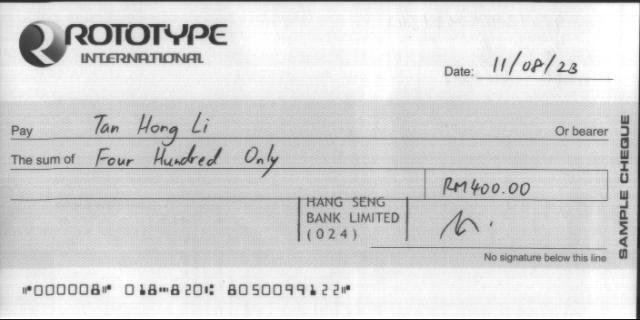 ROTOTYPE
INTERNATIONAL
Date: 11/08/23
Pay Tan Hong Li Or bearer
The sum of Four Hundred Only
RM400.00
HANG SENG
BANK LIMITED
(024)
No signature below this line
SAMPLE CHEQUE
⑈000008⑈ 018⑉820⑆ 8050099122⑈